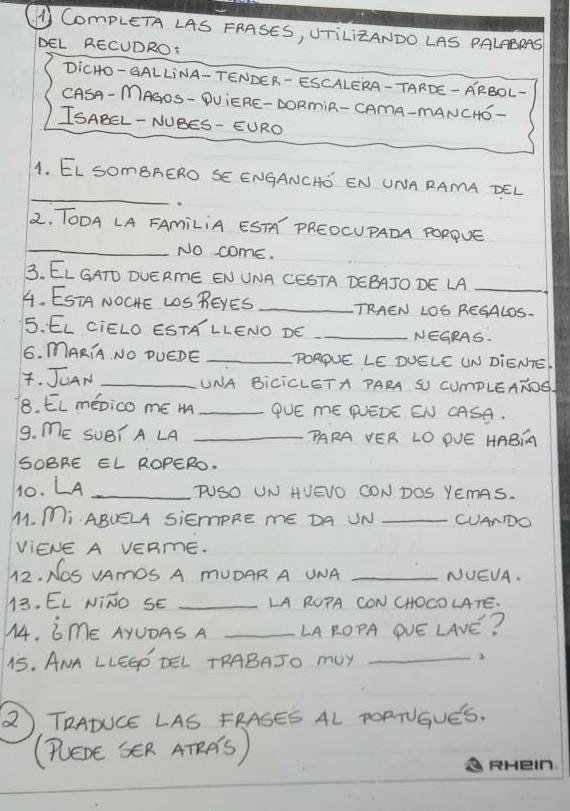 1) COMPLETA LAS FRASES, UTILIZANDO LAS PALABRAS
DEL RECUDRO:
DICHO-GALLINA-TENDER-ESCALERA-TARDE-ÁRBOL-
CASA-MAGOS-QUIERE-DORMIR-CAMA-MANCHÓ-
ISABEL-NUBES-EURO
1. EL SOMBRERO SE ENGANCHÓ EN UNA RAMA DEL
____________.
2. TODA LA FAMILIA ESTÁ PREOCUPADA PORQUE
____________ NO COME.
3. EL GATO DUERME EN UNA CESTA DEBAJO DE LA ______.
4. ESTA NOCHE LOS REYES ________ TRAEN LOS REGALOS.
5. EL CIELO ESTÁ LLENO DE ________ NEGRAS.
6. MARÍA NO PUEDE _______ PORQUE LE DUELE UN DIENTE.
7. JUAN ________ UNA BICICLETA PARA SU CUMPLEAÑOS.
8. EL MÉDICO ME HA _____ QUE ME QUEDE EN CASA.
9. ME SUBÍ A LA _________ PARA VER LO QUE HABÍA
SOBRE EL ROPERO.
10. LA ________ PUSO UN HUEVO CON DOS YEMAS.
11. MI ABUELA SIEMPRE ME DA UN _____ CUANDO
VIENE A VERME.
12. NOS VAMOS A MUDAR A UNA _______ NUEVA.
13. EL NIÑO SE ______ LA ROPA CON CHOCOLATE.
14. ¿ME AYUDAS A _____ LA ROPA QUE LAVÉ?
15. ANA LLEGÓ DEL TRABAJO MUY ________.
2) TRADUCE LAS FRASES AL PORTUGUÉS.
(PUEDE SER ATRÁS)
RHEIN